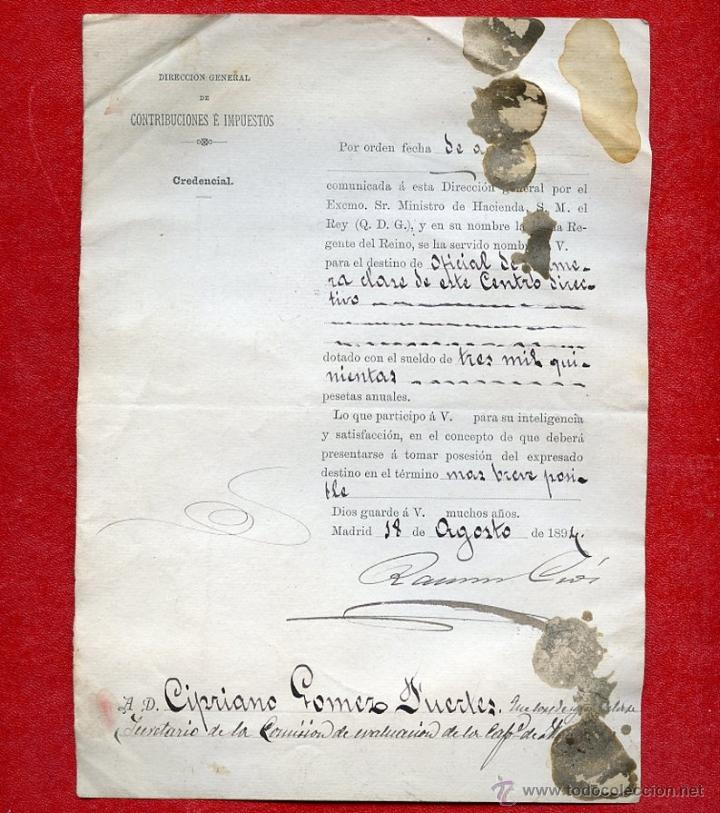 DIRECCIÓN GENERAL
DE
CONTRIBUCIONES É IMPUESTOS
Credencial.
Por orden fecha de
comunicada á esta Dirección general por el
Excmo. Sr. Ministro de Hacienda, S. M. el
Rey (Q. D. G.), y en su nombre la Re-
gente del Reino, se ha servido nombrar V.
para el destino de Oficial de
clase de este Centro direc-
tivo
dotado con el sueldo de tres mil qui-
nientas
pesetas anuales.
Lo que participo á V. para su inteligencia
y satisfacción, en el concepto de que deberá
presentarse á tomar posesión del expresado
destino en el término mas breve posi-
ble
Dios guarde á V. muchos años.
Madrid 18 de Agosto de 1894.
A D. Cipriano Gomez Fuertes,
Secretario de la Comisión de evaluacion de la
todocoleccion.net